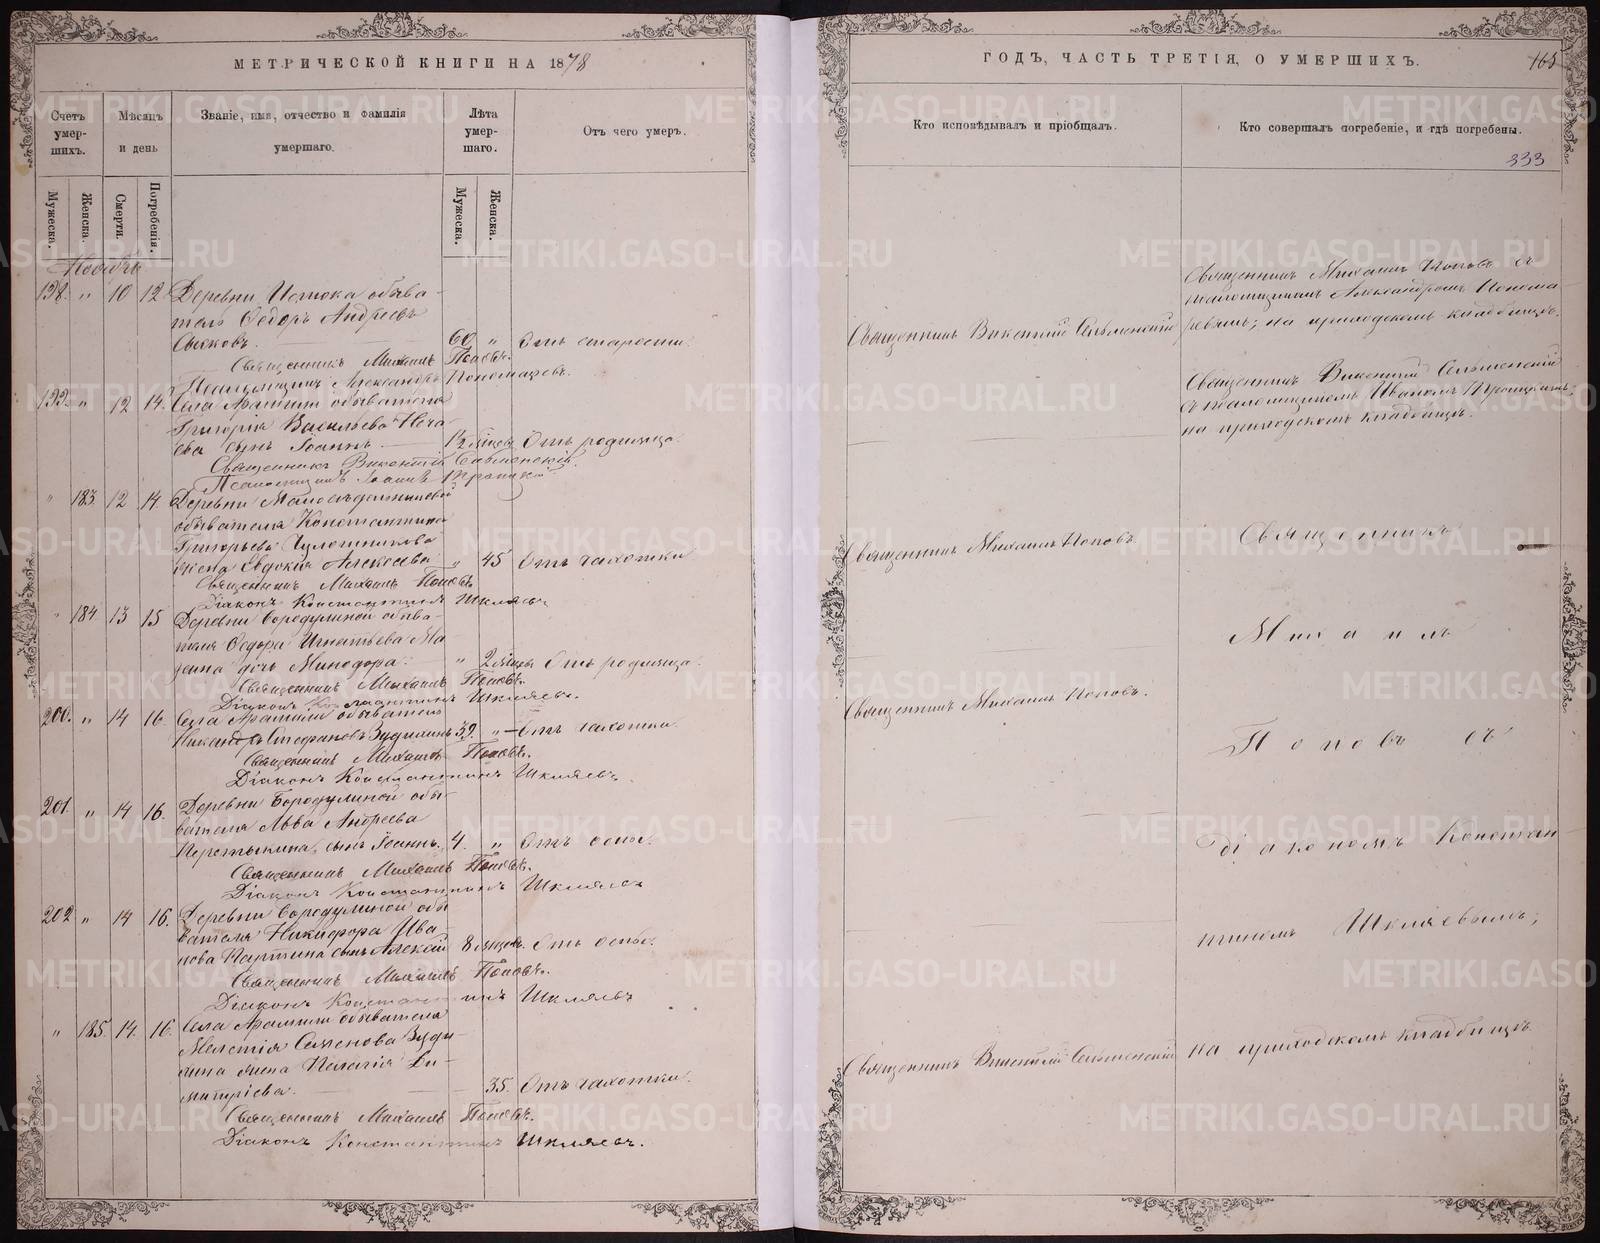 МЕТРИЧЕСКОЙ КНИГИ НА 1878
Счетъ умер-шихъ.
Мѣсяцъ и день
Званіе, имя, отчество и фамилія умершаго.
Лѣта умер-шаго.
Отъ чего умеръ.
Мужеска.
Женска.
Смерти.
Погребенія.
Мужеска.
Женска.
Ноябрь
198. " 10 12. Деревни Истока обыва-
тель Ѳедоръ Андреевъ
60 " Отъ старости.
Священникъ Михаилъ Поповъ.
Псаломщикъ Александръ Пономаревъ.
199. " 12 14. Села Арамили обывателя
Григорія Васильева Неча-
ева сынъ Іоаннъ. Отъ родимца.
Священникъ Викентій Сельменскій.
Псаломщикъ Іоаннъ Троицкій
" 183 12 14. Деревни
обывателя Константина
Григорьева
жена Евдокія Алексеева " 45 Отъ чахотки
Священникъ Михаилъ Поповъ.
Діаконъ Константинъ Шкляевъ.
" 184 13 15 Деревни Бородулиной обыва-
теля Ѳедора Игнатьева
дочь Минодора. " 2 мѣсяцы Отъ родимца.
Священникъ Михаилъ Поповъ.
Діаконъ Константинъ Шкляевъ.
200. " 14 16. Села Арамили обыватель
Никандръ Стефановъ Зудилинъ 39. " Отъ чахотки.
Священникъ Михаилъ Поповъ.
Діаконъ Константинъ Шкляевъ.
201. " 14 16. Деревни Бородулиной обы-
вателя Льва Андреева
сынъ Іоаннъ. 4. " Отъ оспы.
Священникъ Михаилъ Поповъ.
Діаконъ Константинъ Шкляевъ
202 " 14 16. Деревни Бородулиной обы
вателя Никифора Ива-
нова сынъ Алексѣй 8 мѣсяцовъ. Отъ оспы.
Священникъ Михаилъ Поповъ.
Діаконъ Константинъ Шкляевъ
" 185. 14. 16. Села Арамили обывателя
Мелетія Семенова Зуди-
лина жена Пелагія Ди-
митріева. 35. Отъ чахотки.
Священникъ Михаилъ Поповъ.
Діаконъ Константинъ Шкляевъ.
ГОДЪ, ЧАСТЬ ТРЕТІЯ, О УМЕРШИХЪ.
165
Кто исповѣдывалъ и пріобщалъ.
Кто совершалъ погребеніе, и гдѣ погребены.
333
Священникъ Михаилъ Поповъ съ
псаломщикомъ Александромъ Понома-
Священникъ Викентій Сельменскій ревымъ; на приходскомъ кладбищѣ.
Священникъ Викентій Сельменскій
съ псаломщикомъ Иваномъ Троицкимъ;
на приходскомъ кладбищѣ.
Священникъ Михаилъ Поповъ. Священникъ
Михаилъ
Священникъ Михаилъ Поповъ.
Поповъ съ
діакономъ Констан
тиномъ Шкляевымъ;
Священникъ Викентій Сельменскій на приходскомъ кладбищѣ
METRIKI.GASO-URAL.RU